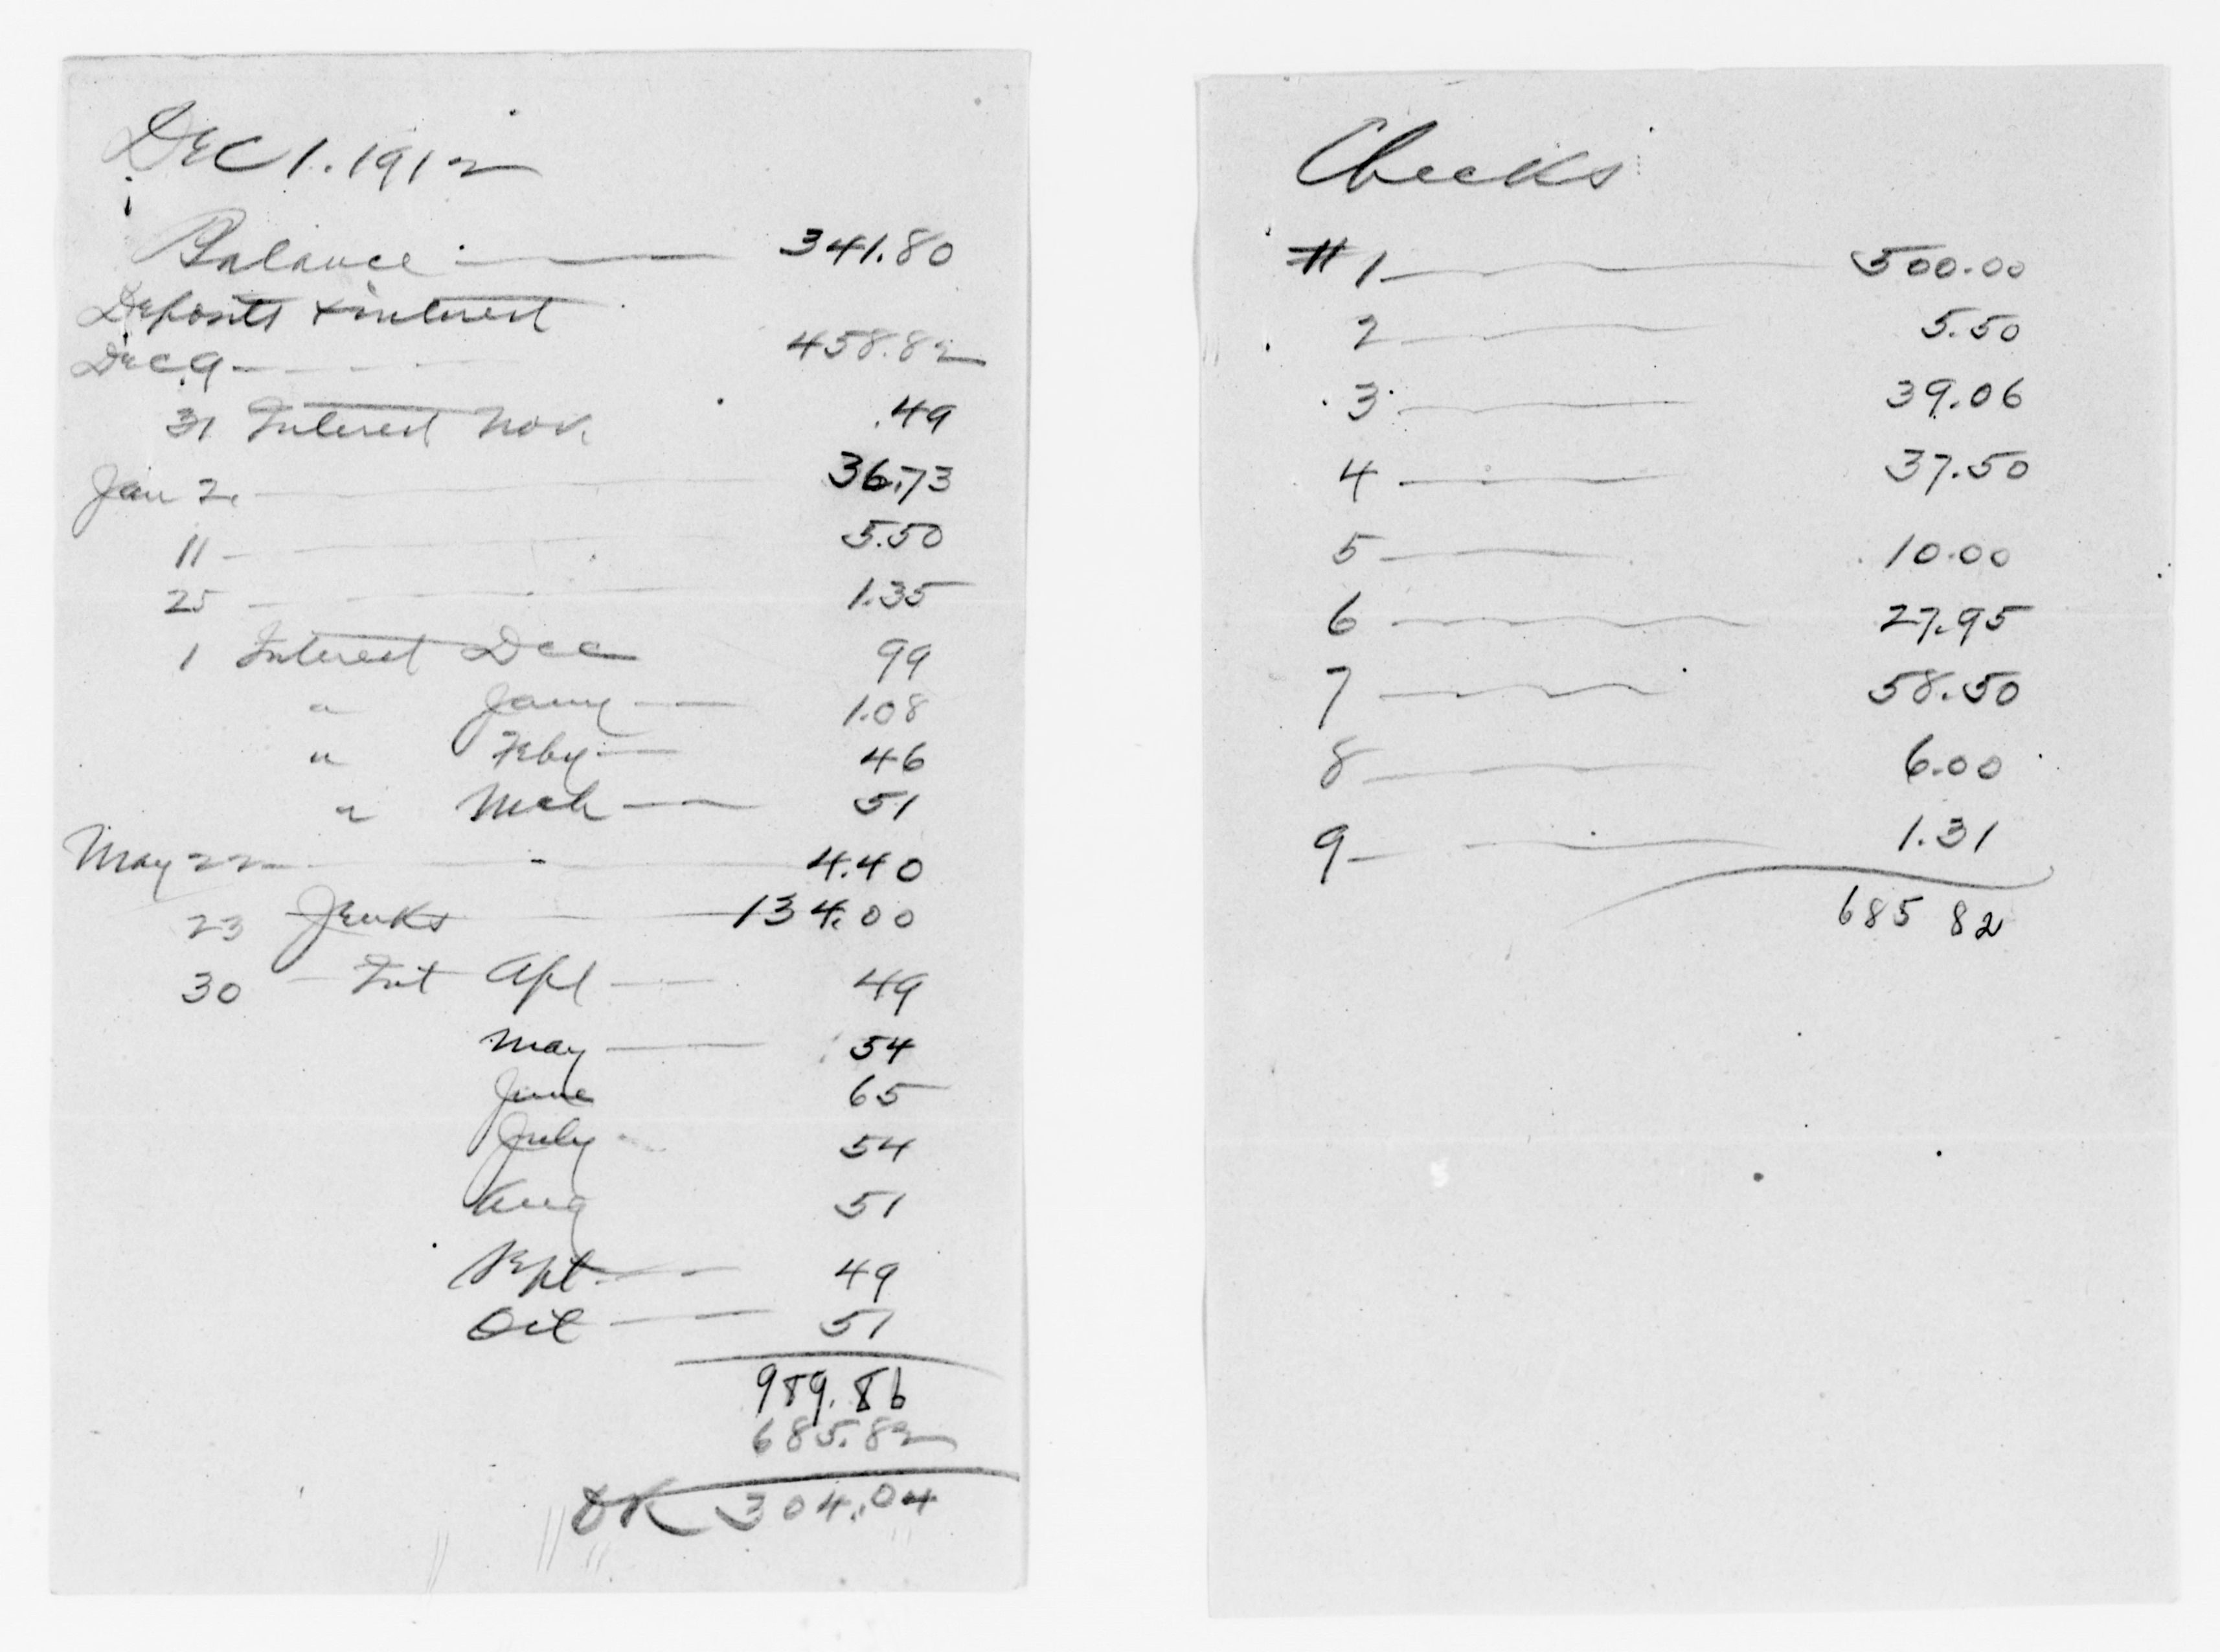 Dec 1. 1912
Balance 341.80
Deposits & interest
Dec 9 458.82
31 Interest Nov. .49
Jan 2. 36.73
11 5.50
25 1.35
1 Interest Dec 99
" Jany 1.08
" Feby 46
" Mch 51
May 22 4.40
23 Jenks 134.00
30 Int Apl 49
May 54
June 65
July 54
Aug 51
Sept. 49
Oct 51
989.86
685.82
OK 304.04
Checks
# 1 500.00
2 5.50
3 39.06
4 37.50
5 10.00
6 27.95
7 58.50
8 6.00
9 1.31
685 82